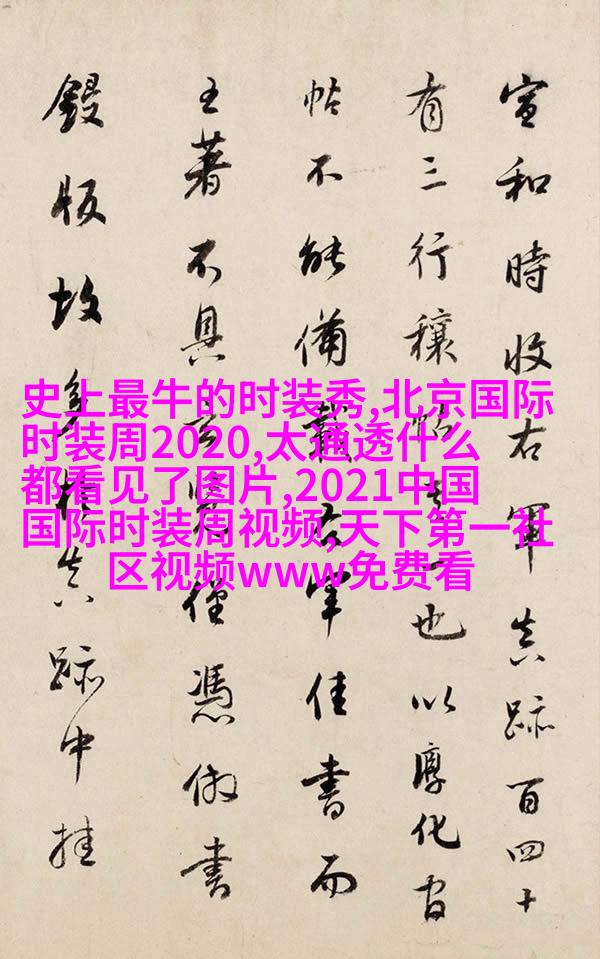 宣和時收右軍真跡百四十
有三行穰帖其一也以淳化官
帖不能備載右軍佳書而
王著不具玄鑒僅憑倣書
鋟版故多真跡中挂
史上最牛的时装秀,北京国际
时装周2020,太通透什么
都看见了图片,2021中国
国际时装周视频,天下第一社
区视频www免费看